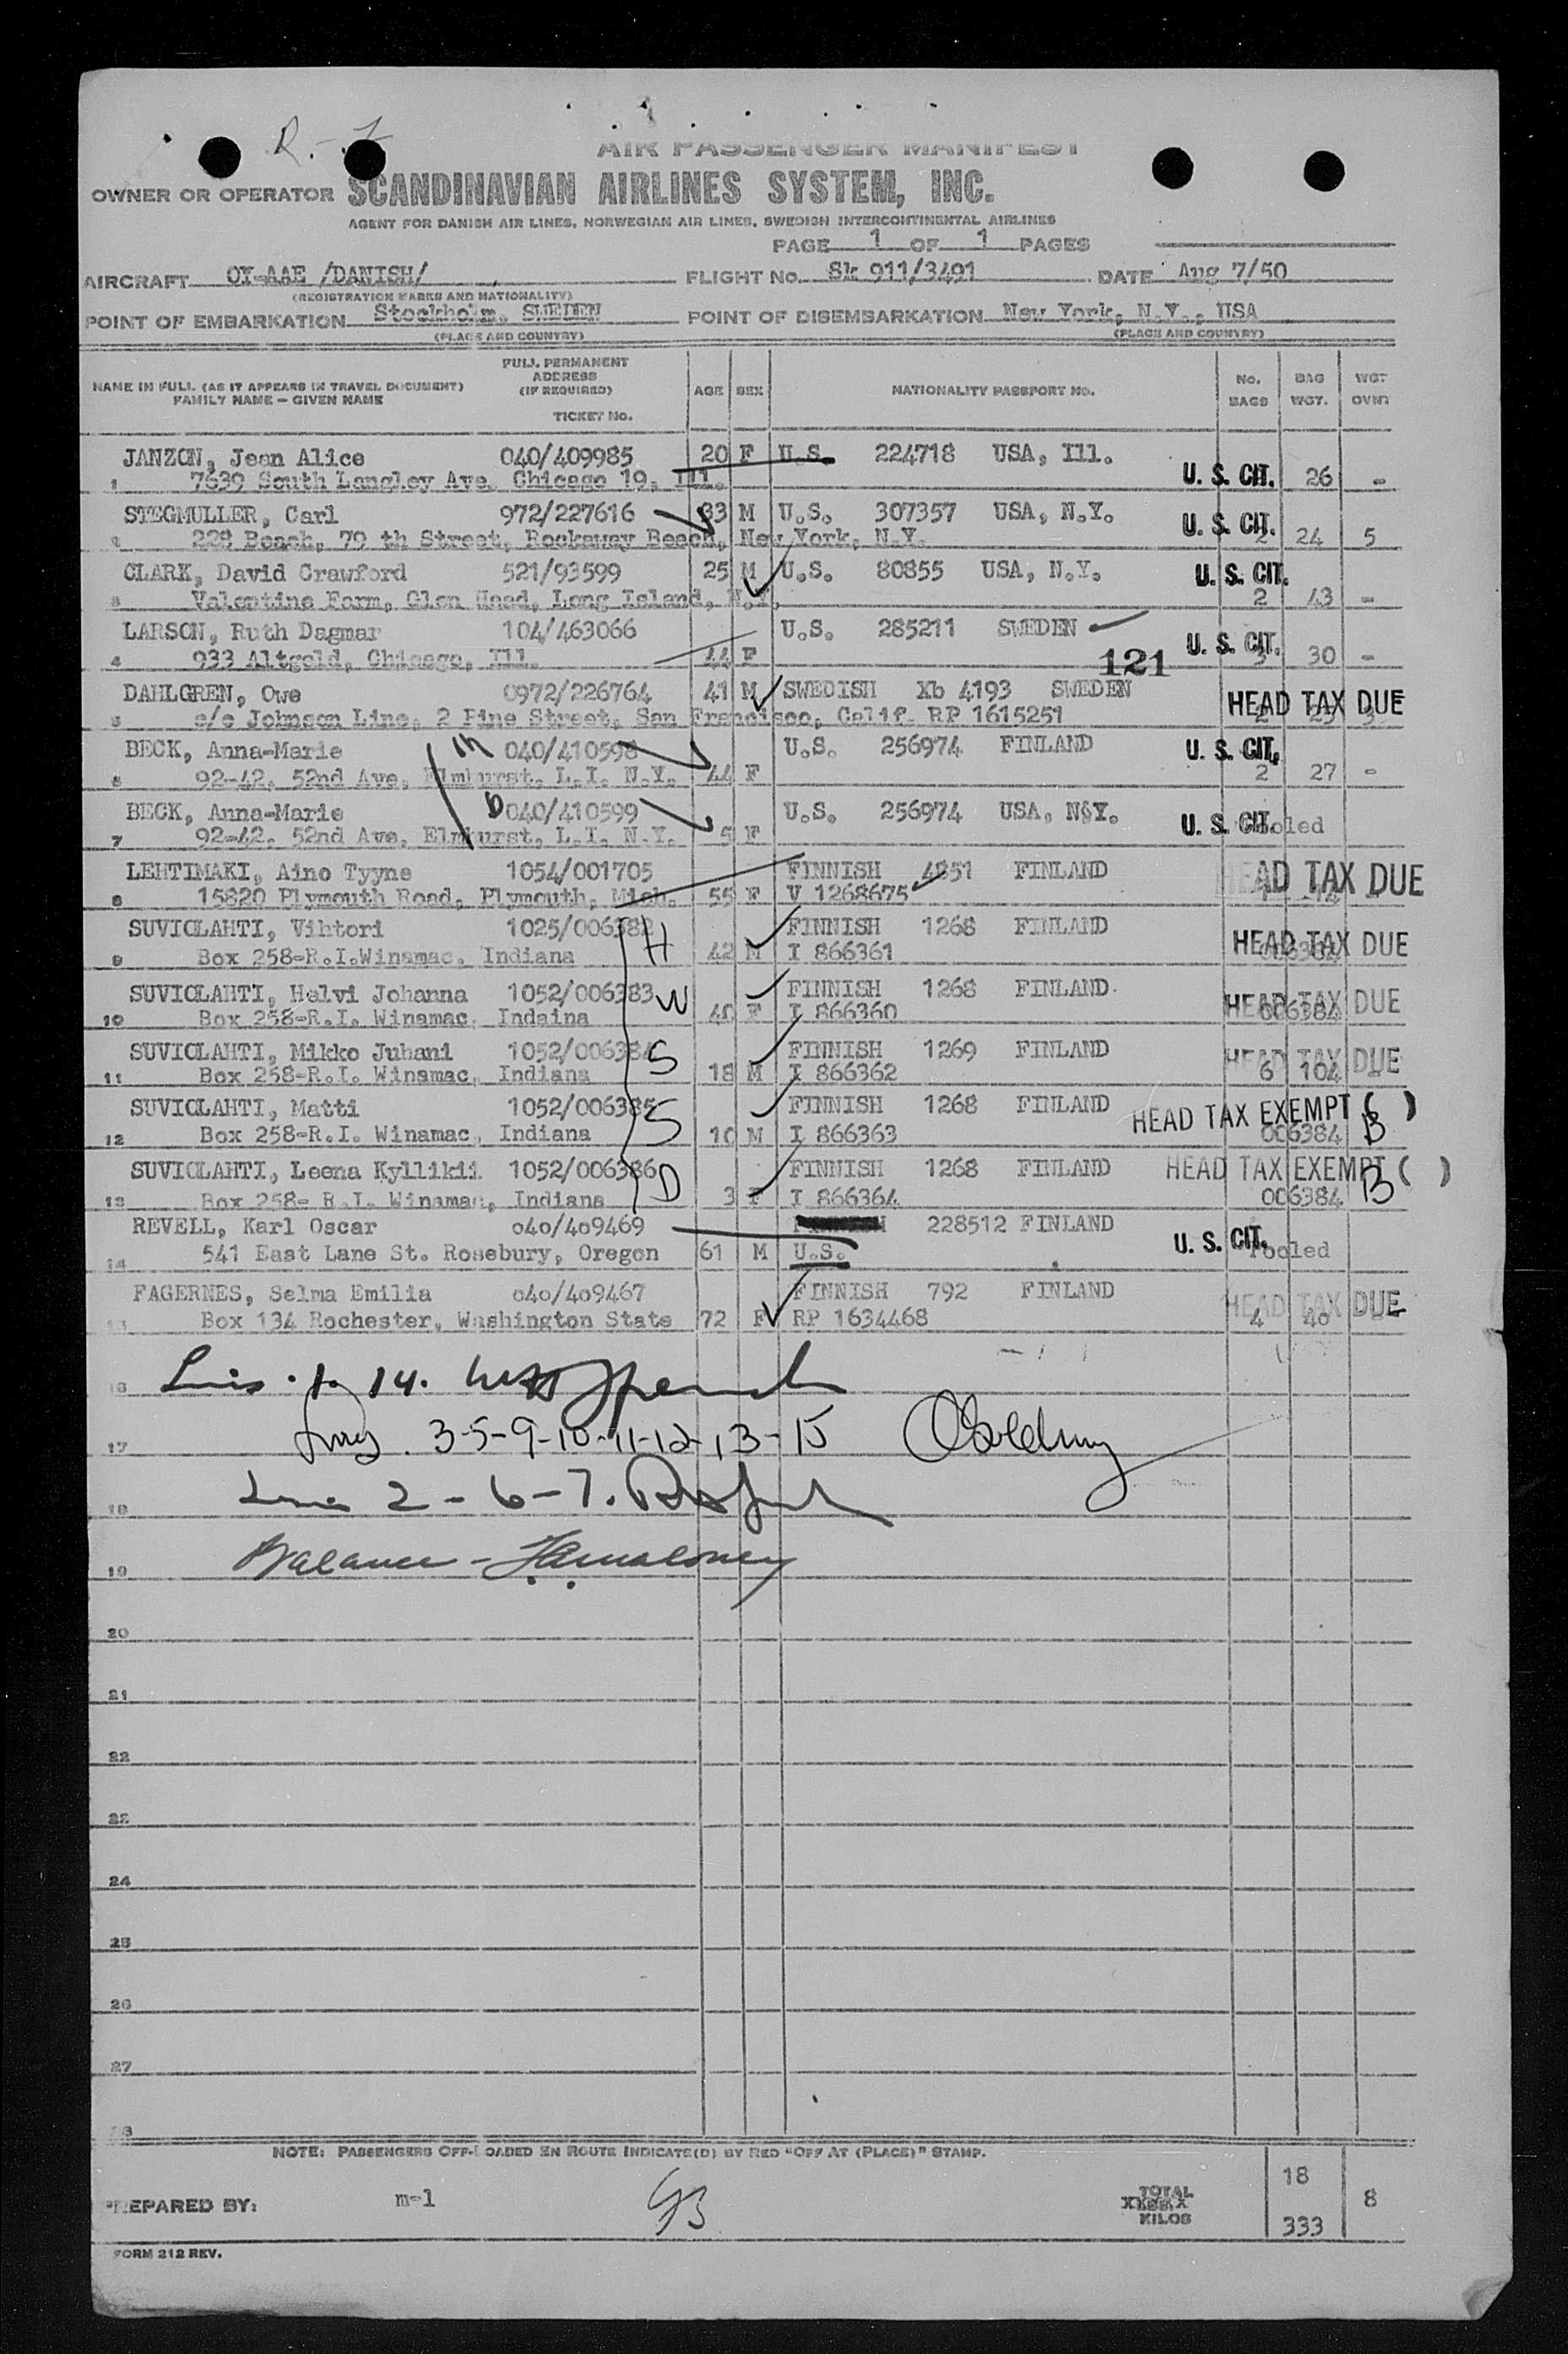 R.
AIR PASSENGER MANIFEST
OWNER OR OPERATOR SCANDINAVIAN AIRLINES SYSTEM, INC.
AGENT FOR DANISH AIR LINES, NORWEGIAN AIR LINES, SWEDISH INTERCONTINENTAL AIRLINES
PAGE 1 OF 1 PAGES
AIRCRAFT OY-AAE /DANISH/ FLIGHT No. Sk 911/3491 DATE Aug 7/50
(REGISTRATION MARKS AND NATIONALITY)
POINT OF EMBARKATION Stockholm, SWEDEN POINT OF DISEMBARKATION New York, N.Y., USA
(PLACE AND COUNTRY) (PLACE AND COUNTRY)
NAME IN FULL (AS IT APPEARS IN TRAVEL DOCUMENT) FAMILY NAME – GIVEN NAME FULL PERMANENT ADDRESS (IF REQUIRED) TICKET No. AGE SEX NATIONALITY PASSPORT NO. No. BAGS BAG WGT. WGT OVWT
JANZON, Jean Alice 040/409985 20 F U.S. 224718 USA, Ill.
1 7639 South Langley Ave. Chicago 19, Ill. U. S. CIT. 26 -
STEGMULLER, Carl 972/227616 33 M U.S. 307357 USA, N.Y.
2 228 Beach, 79 th Street, Rockaway Beach, New York, N.Y. U. S. CIT. 2 24 5
CLARK, David Crawford 521/93599 25 M U.S. 80855 USA, N.Y. U. S. CIT.
3 Valentine Farm, Glen Head, Long Island, N.Y. 2 43 -
LARSON, Ruth Dagmar 104/463066 U.S. 285211 SWEDEN
4 933 Altgeld, Chicago, Ill. 44 F 121 U. S. CIT. 3 30 -
DAHLGREN, Owe 0972/226764 41 M SWEDISH Xb 4193 SWEDEN HEAD TAX DUE
5 c/o Johnson Line, 2 Pine Street, San Francisco, Calif. RP 1615251
BECK, Anna-Marie M 040/410598 U.S. 256974 FINLAND U. S. CIT.
6 92-42. 52nd Ave. Elmhurst. L.I. N.Y. 44 F 2 27 -
BECK, Anna-Marie D 040/410599 U.S. 256974 USA, N&Y.
7 92-42. 52nd Ave. Elmhurst. L.I. N.Y. 5 F U. S. CIT. Pooled
LEHTIMAKI, Aino Tyyne 1054/001705 FINNISH 4851 FINLAND HEAD TAX DUE
8 15820 Plymouth Road, Plymouth, Mich. 55 F V 1268675
SUVIOLAHTI, Vihtori 1025/006382 H FINNISH 1268 FINLAND HEAD TAX DUE
9 Box 258-R.I.Winamac. Indiana 42 M I 866361 006384
SUVIOLAHTI, Helvi Johanna 1052/006383 W FINNISH 1268 FINLAND HEAD TAX DUE
10 Box 258-R.I. Winamac, Indaina 40 F I 866360 006384
SUVIOLAHTI, Mikko Juhani 1052/006384 S FINNISH 1269 FINLAND HEAD TAX DUE
11 Box 258-R.I. Winamac, Indiana 18 M I 866362 6 104 -
SUVIOLAHTI, Matti 1052/006385 S FINNISH 1268 FINLAND HEAD TAX EXEMPT ( )
12 Box 258-R.I. Winamac, Indiana 10 M I 866363 006384 B
SUVIOLAHTI, Leena Kyllikii 1052/006386 D FINNISH 1268 FINLAND HEAD TAX EXEMPT ( )
13 Box 258- R.I. Winamac, Indiana 3 F I 866364 006384 B
REVELL, Karl Oscar o4o/4o9469 228512 FINLAND
14 541 East Lane St. Rosebury, Oregon 61 M U.S. U. S. CIT. Pooled
FAGERNES, Selma Emilia o4o/4o9467 FINNISH 792 FINLAND HEAD TAX DUE
15 Box 134 Rochester, Washington State 72 F RP 1634468 4 4o
16 14.
17 3-5-9-10-11-12-13-15
18 2-6-7.
19 Balance
20
21
22
23
24
25
26
27
28
NOTE: PASSENGERS OFF-LOADED EN ROUTE INDICATE(D) BY RED "OFF AT (PLACE)" STAMP.
PREPARED BY: m-1 TOTAL KILOS 18 333 8
FORM 212 REV.